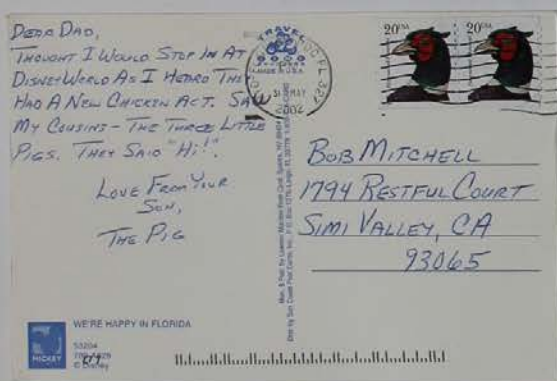 DEAR DAD,
THOUGHT I WOULD STOP IN AT
DISNEYWORLD AS I HEARD THEY
HAD A NEW CHICKEN ACT. SAW
MY COUSINS - THE THREE LITTLE
PIGS. THEY SAID "HI!".
LOVE FROM YOUR
SON,
THE PIG
TRAVEL
MADE IN U.S.A.
FL 327
31 MAY
2002
20USA
20USA
BOB MITCHELL
1794 RESTFUL COURT
SIMI VALLEY, CA
93065
WE'RE HAPPY IN FLORIDA
MICKEY
53204
© Disney